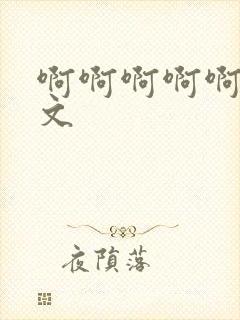 啊啊啊啊啊
文
夜陨落